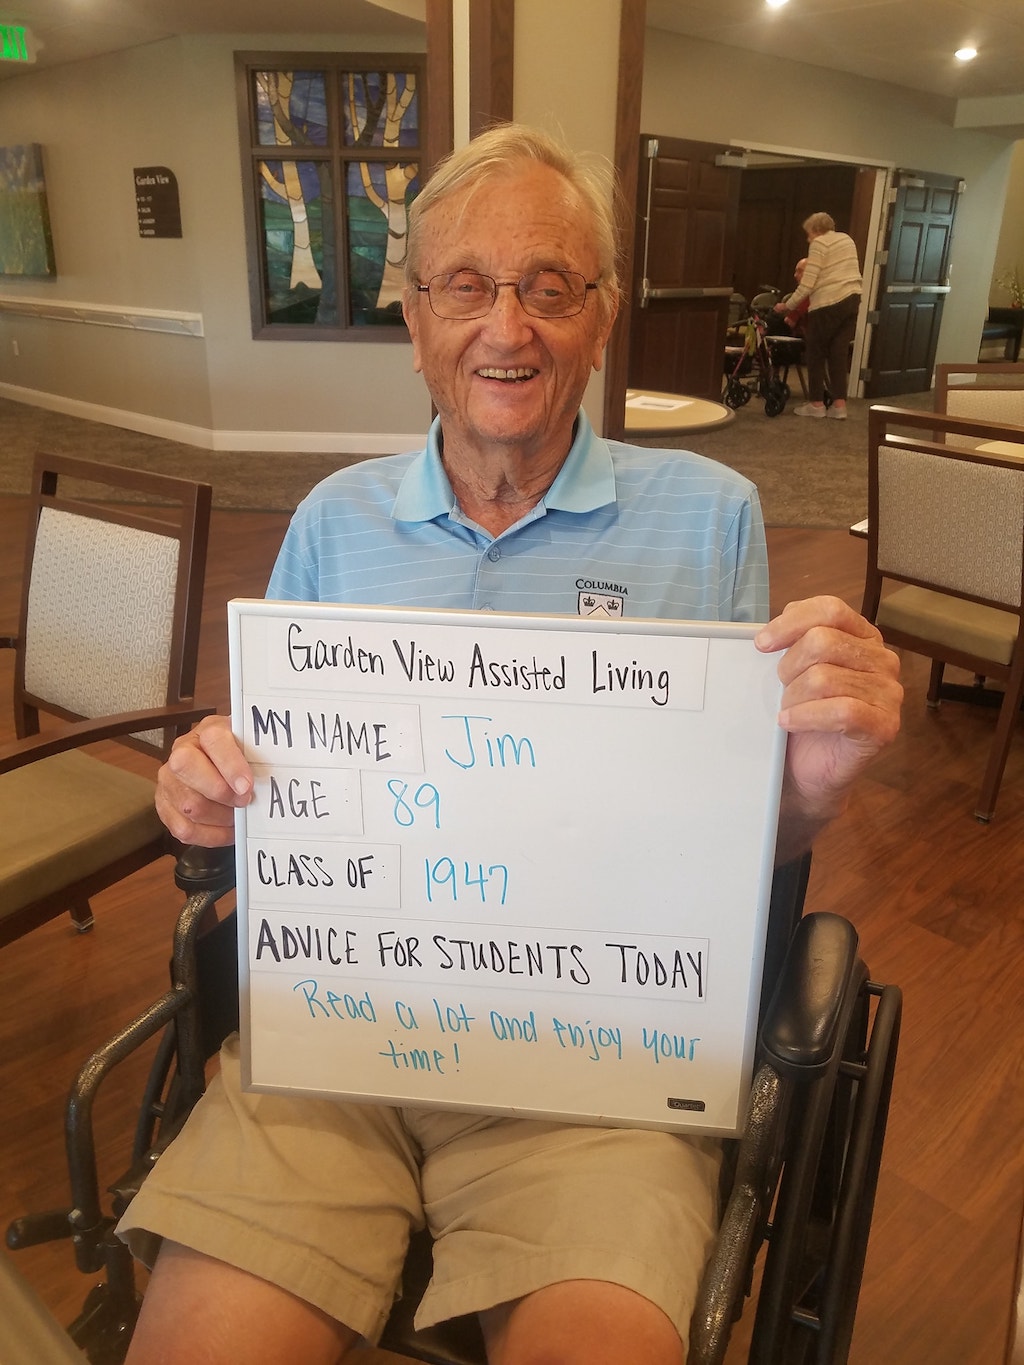 EXIT
Garden View
COLUMBIA
Garden View Assisted Living
MY NAME: Jim
AGE: 89
CLASS OF: 1947
ADVICE FOR STUDENTS TODAY
Read a lot and enjoy your
time!
Quartet